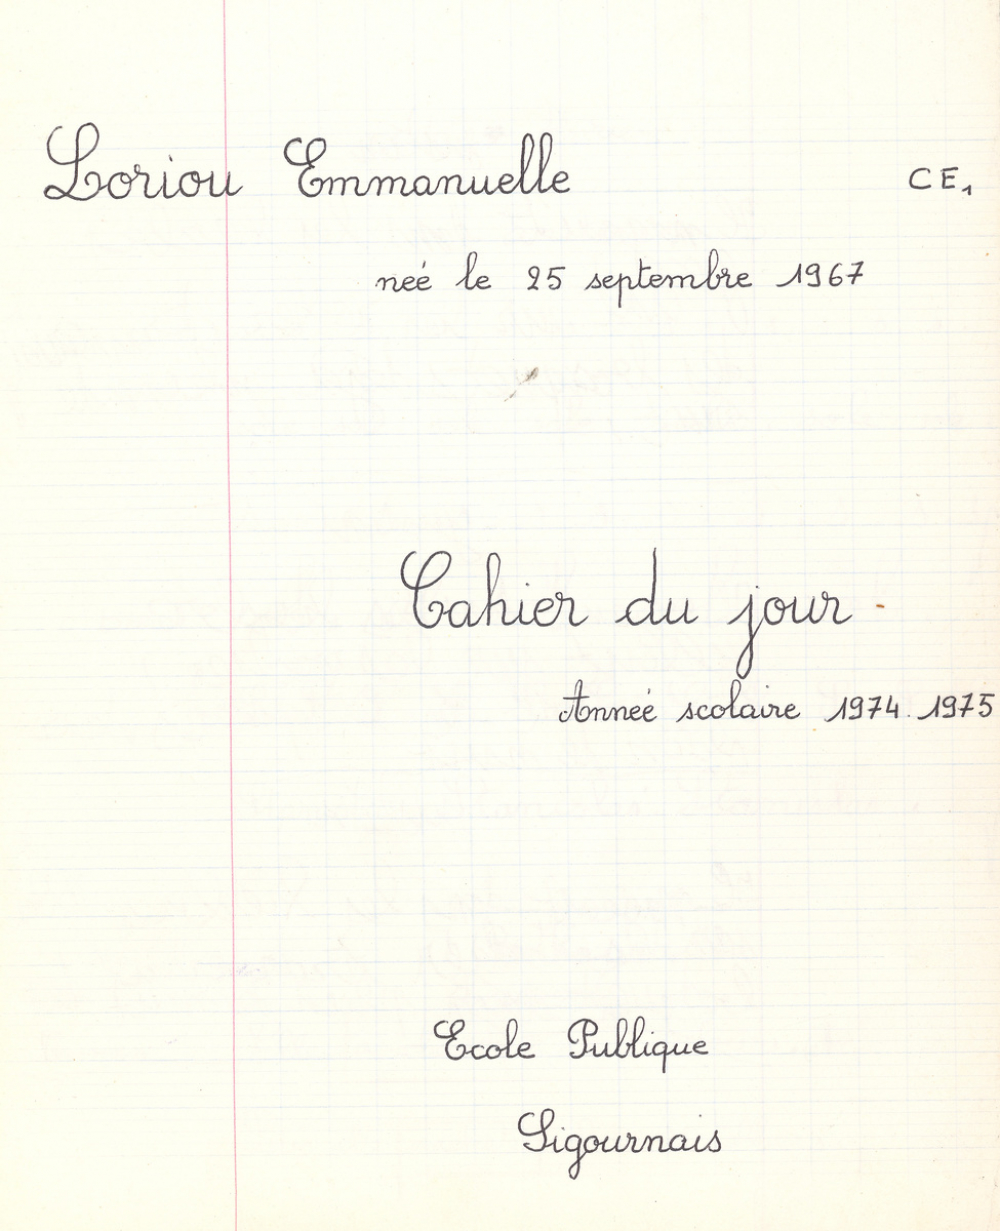 Loriou Emmanuelle CE1
neé le 25 septembre 1967
Cahier du jour
Anneé scolaire 1974.1975
Ecole Publique
Sigournais